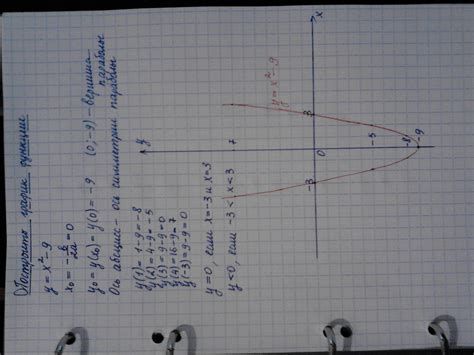 Построить график функции
y = x² - 9
x₀ = -b/2a = 0
y₀ = y(x₀) = y(0) = -9 (0; -9) - вершина параболы
Ось абсцисс - ось симметрии параболы
y(1) = 1 - 9 = -8
y(2) = 4 - 9 = -5
y(3) = 9 - 9 = 0
y(4) = 16 - 9 = 7
y(-3) = 9 - 9 = 0
y = 0, если x = -3 и x = 3
y < 0, если -3 < x < 3
y
7
y = x² - 9
-3
0
3
x
-5
-8
-9